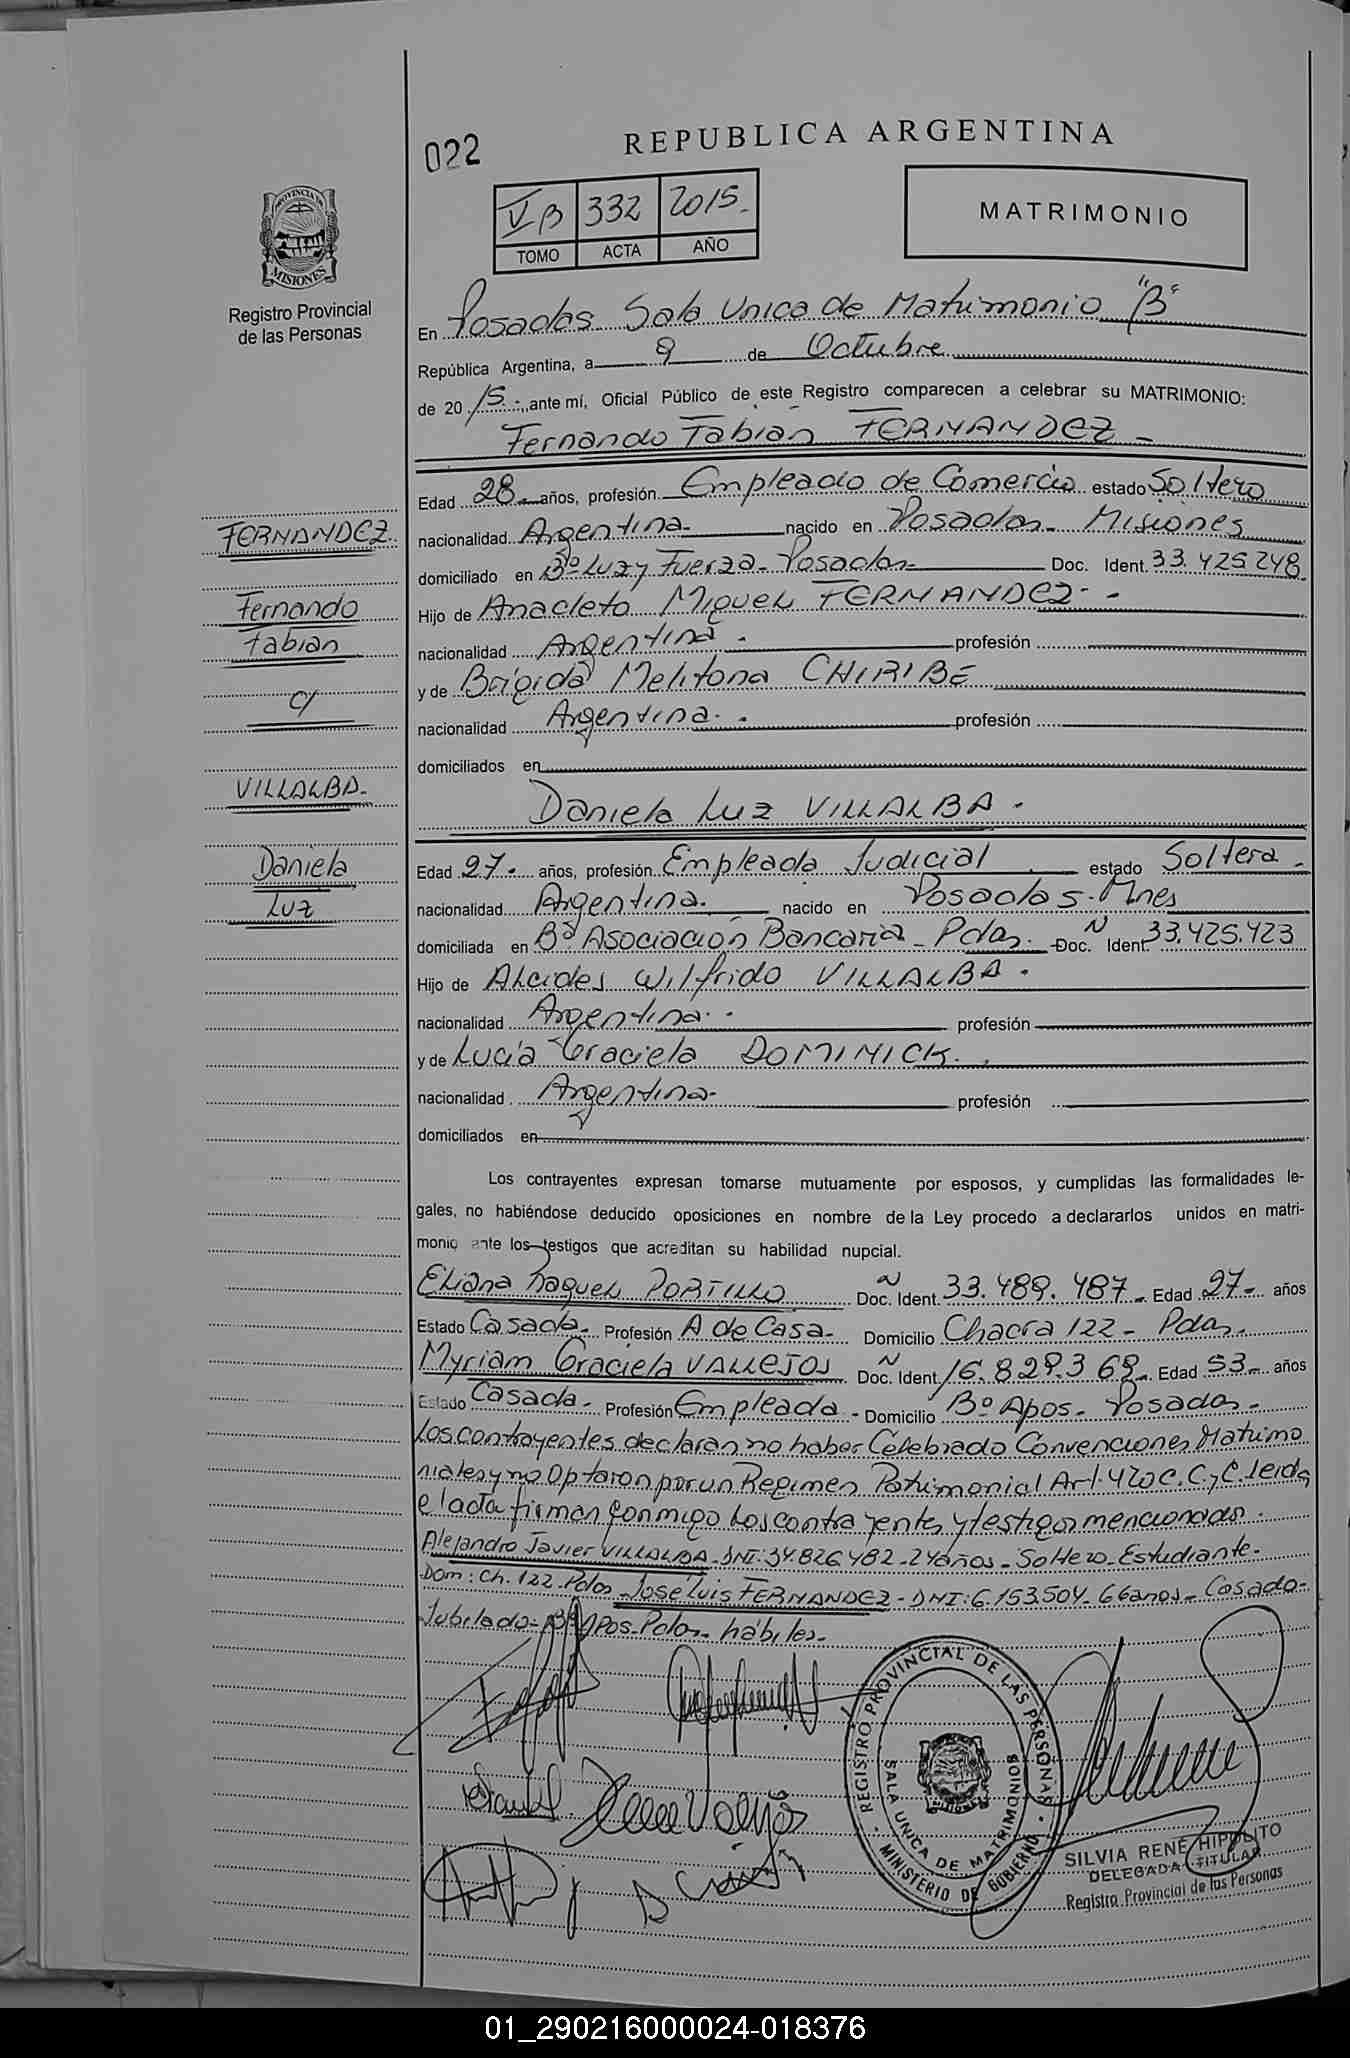 022
REPUBLICA ARGENTINA
VB 332 2015.
TOMO ACTA AÑO
MATRIMONIO
PROVINCIA DE
MISIONES
Registro Provincial
de las Personas
En Posadas Sala Unica de Matrimonio "B"
República Argentina, a 9 de Octubre
de 2015.-, ante mí, Oficial Público de este Registro comparecen a celebrar su MATRIMONIO:
Fernando Fabián FERNANDEZ -
Edad 28- años, profesión Empleado de Comercio estado Soltero
nacionalidad Argentina- nacido en Posadas- Misiones
domiciliado en Bº Luz y Fuerza- Posadas- Doc. Ident. 33.425.248
Hijo de Anacleto Miguel FERNANDEZ--
nacionalidad Argentina. profesión
y de Brigida Melitona CHIRIBE
nacionalidad Argentina. profesión
domiciliados en
Daniela Luz VILLALBA.
Edad 27. años, profesión Empleada Judicial estado Soltera.
nacionalidad Argentina. nacido en Posadas-Mnes
domiciliada en Bº Asociación Bancaria- Pdas. Doc. N Ident 33.425.423
Hijo de Alcides Wilfrido VILLALBA.
nacionalidad Argentina.. profesión
y de Lucía Graciela DOMINICK.
nacionalidad Argentina- profesión
domiciliados en
FERNANDEZ.
Fernando
Fabian
c/
VILLALBA-
Daniela
Luz
Los contrayentes expresan tomarse mutuamente por esposos, y cumplidas las formalidades le-
gales, no habiéndose deducido oposiciones en nombre de la Ley procedo a declararlos unidos en matri-
monio ante los testigos que acreditan su habilidad nupcial.
Eliana Raquel PORTILLO Doc. Ident. 33.489.487- Edad 27- años
Estado Casada- Profesión A de Casa- Domicilio Chacra 122- Pdas.
Myriam Graciela VALLEJOS Doc. Ident. 16.829.369- Edad 53- años
Estado Casada- Profesión Empleada- Domicilio Bº Apos- Posadas-
Los contrayentes declaran no haber Celebrado Convenciones Matrimo
niales y no Optaron por un Regimen Patrimonial Art. 420 C.C. y C. leida
el acta firman conmigo los contrayentes y testigos mencionados.
Alejandro Javier VILLALBA- DNI:34.826.482-24años-Soltero-Estudiante-
Dom: Ch. 122-Pdas-José Luis FERNANDEZ-DNI:6.153.504-66años-Casado-
Jubilado-Bº Apos-Pdas-hábiles-
REGISTRO PROVINCIAL DE LAS PERSONAS
SALA UNICA DE MATRIMONIOS
MINISTERIO DE GOBIERNO
SILVIA RENE HIPOLITO
DELEGADA TITULAR
Registro Provincial de las Personas
01_290216000024-018376